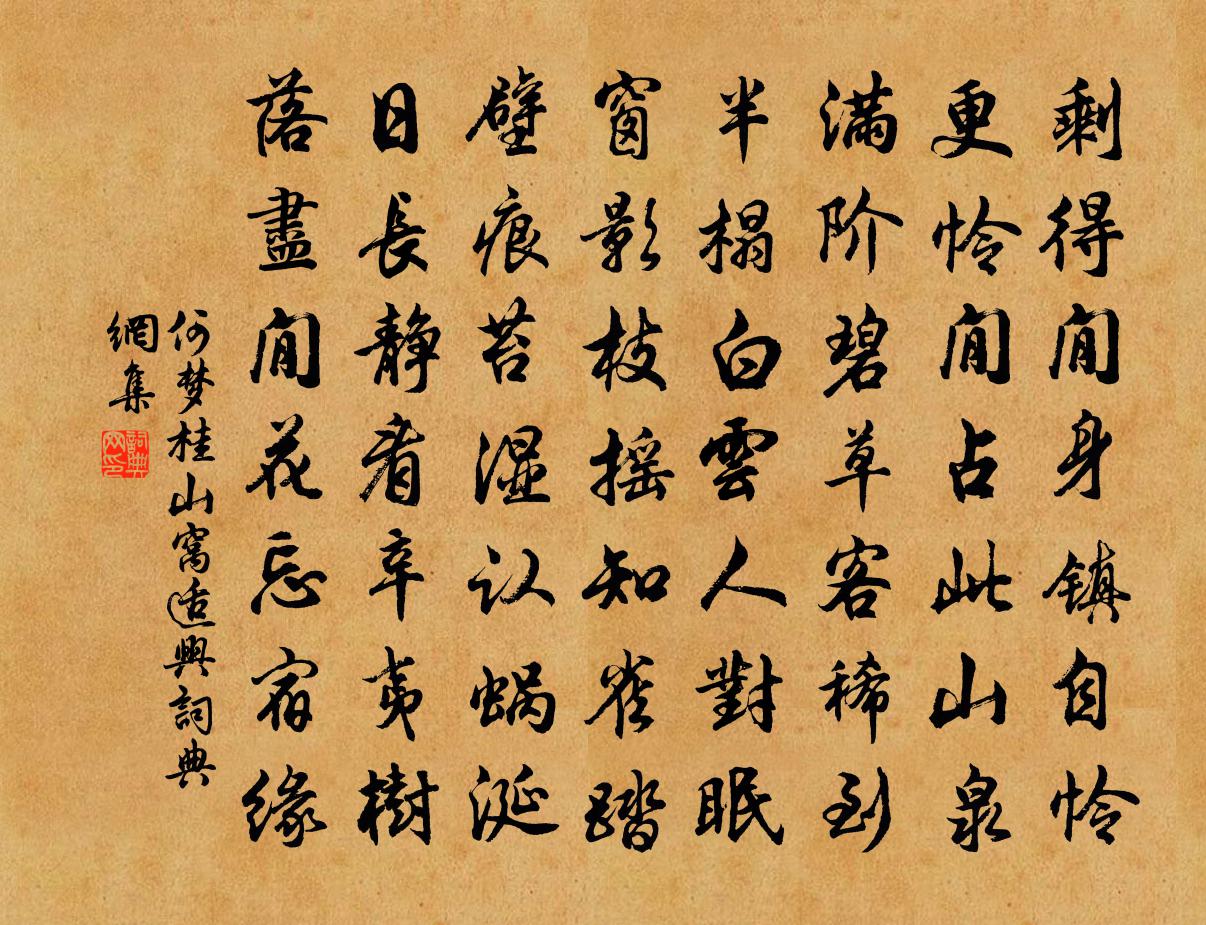 剩得閒身镇自怜
更怜閒占此山泉
满阶碧草客稀到
半榻白雲人對眠
窗影枝摇知雀踏
壁痕苔湿认蜗涎
日長静看辛夷樹
落盡閒花忘宿缘
何梦桂山窝适興詞典
網集
詞典
网印